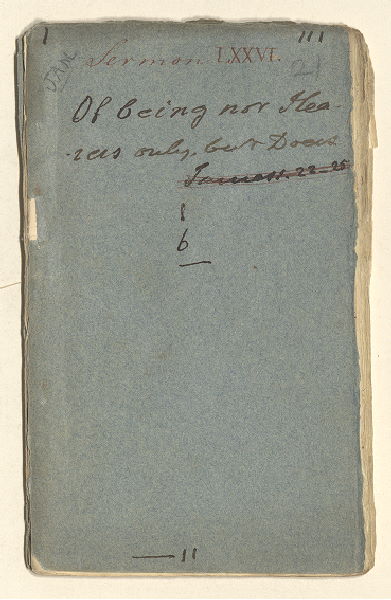 1 111
JAM
Sermon LXXVI.
21
Of being not Hea-
rers only, but Doers
James 1. 22-25
1
6
11